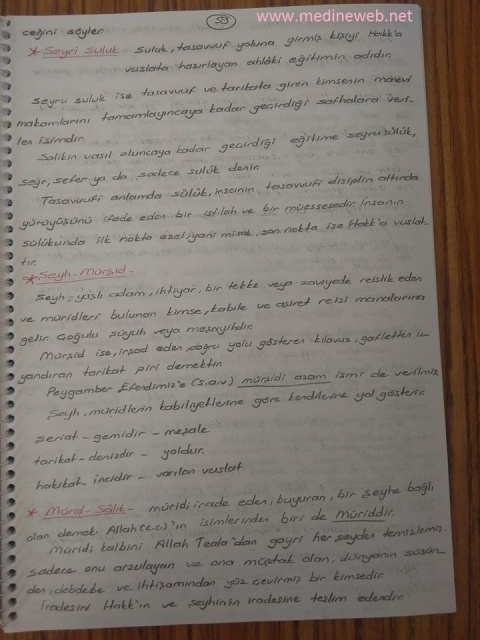 www.medineweb.net
53
ceğini söyler
* Seyri Suluk Suluk, tasavvuf yoluna girmiş kişiyi Hakk'a
vuslata hazırlayan ahlâki eğitimin adıdır.
Seyru suluk ise tasavvuf ve tarikata giren kimsenin manevi
makamlarını tamamlayıncaya kadar geçirdiği safhalara veri-
len isimdir.
Salikin vasıl oluncaya kadar geçirdiği eğitime seyru sülûk,
seyr, sefer ya da sadece sulûk denir.
Tasavvufi anlamda sülûk, insanın tasavvufi disiplin altında
yürüyüşünü ifade eden bir istilah ve bir müessesedir. İnsanın
sülûkunda ilk nokta ezel, yani misak, son nokta ise Hakk'a vuslat-
tır.
* Şeyh-Mürşid-
Şeyh; yaşlı adam, ihtiyar, bir tekke veya zaviyede reislik eden
ve müridleri bulunan kimse, kabile ve aşiret reisi manalarına
gelir. Çoğulu şüyuh veya meşayihdir.
Mürşid ise, irşad eden, doğru yolu gösteren kılavuz, gafletten u-
yandıran tarikat piri demektir.
Peygamber Efendimiz'e (s.a.v) mürşidi azam ismi de verilmiş.
Şeyh, müridlerin kabiliyetlerine göre kendilerine yol gösterir.
şeriat - gemidir - meşale
tarikat - denizdir - yoldur.
hakikat - incidir - varılan vuslat
* Mürid - Sâlik - müridi irade eden, buyuran, bir şeyhe bağlı
olan demek. Allah (c.c)'ın isimlerinden biri de Müriddir.
Mürid; kalbini Allah Teala'dan gayri her şeyden temizlemiş.
sadece onu arzulayan ve ona müştak olan, dünyanın süsün-
den, debdebe ve ihtişamından yüz çevirmiş bir kimsedir.
İradesini Hakk'ın ve şeyhinin iradesine teslim edendir.